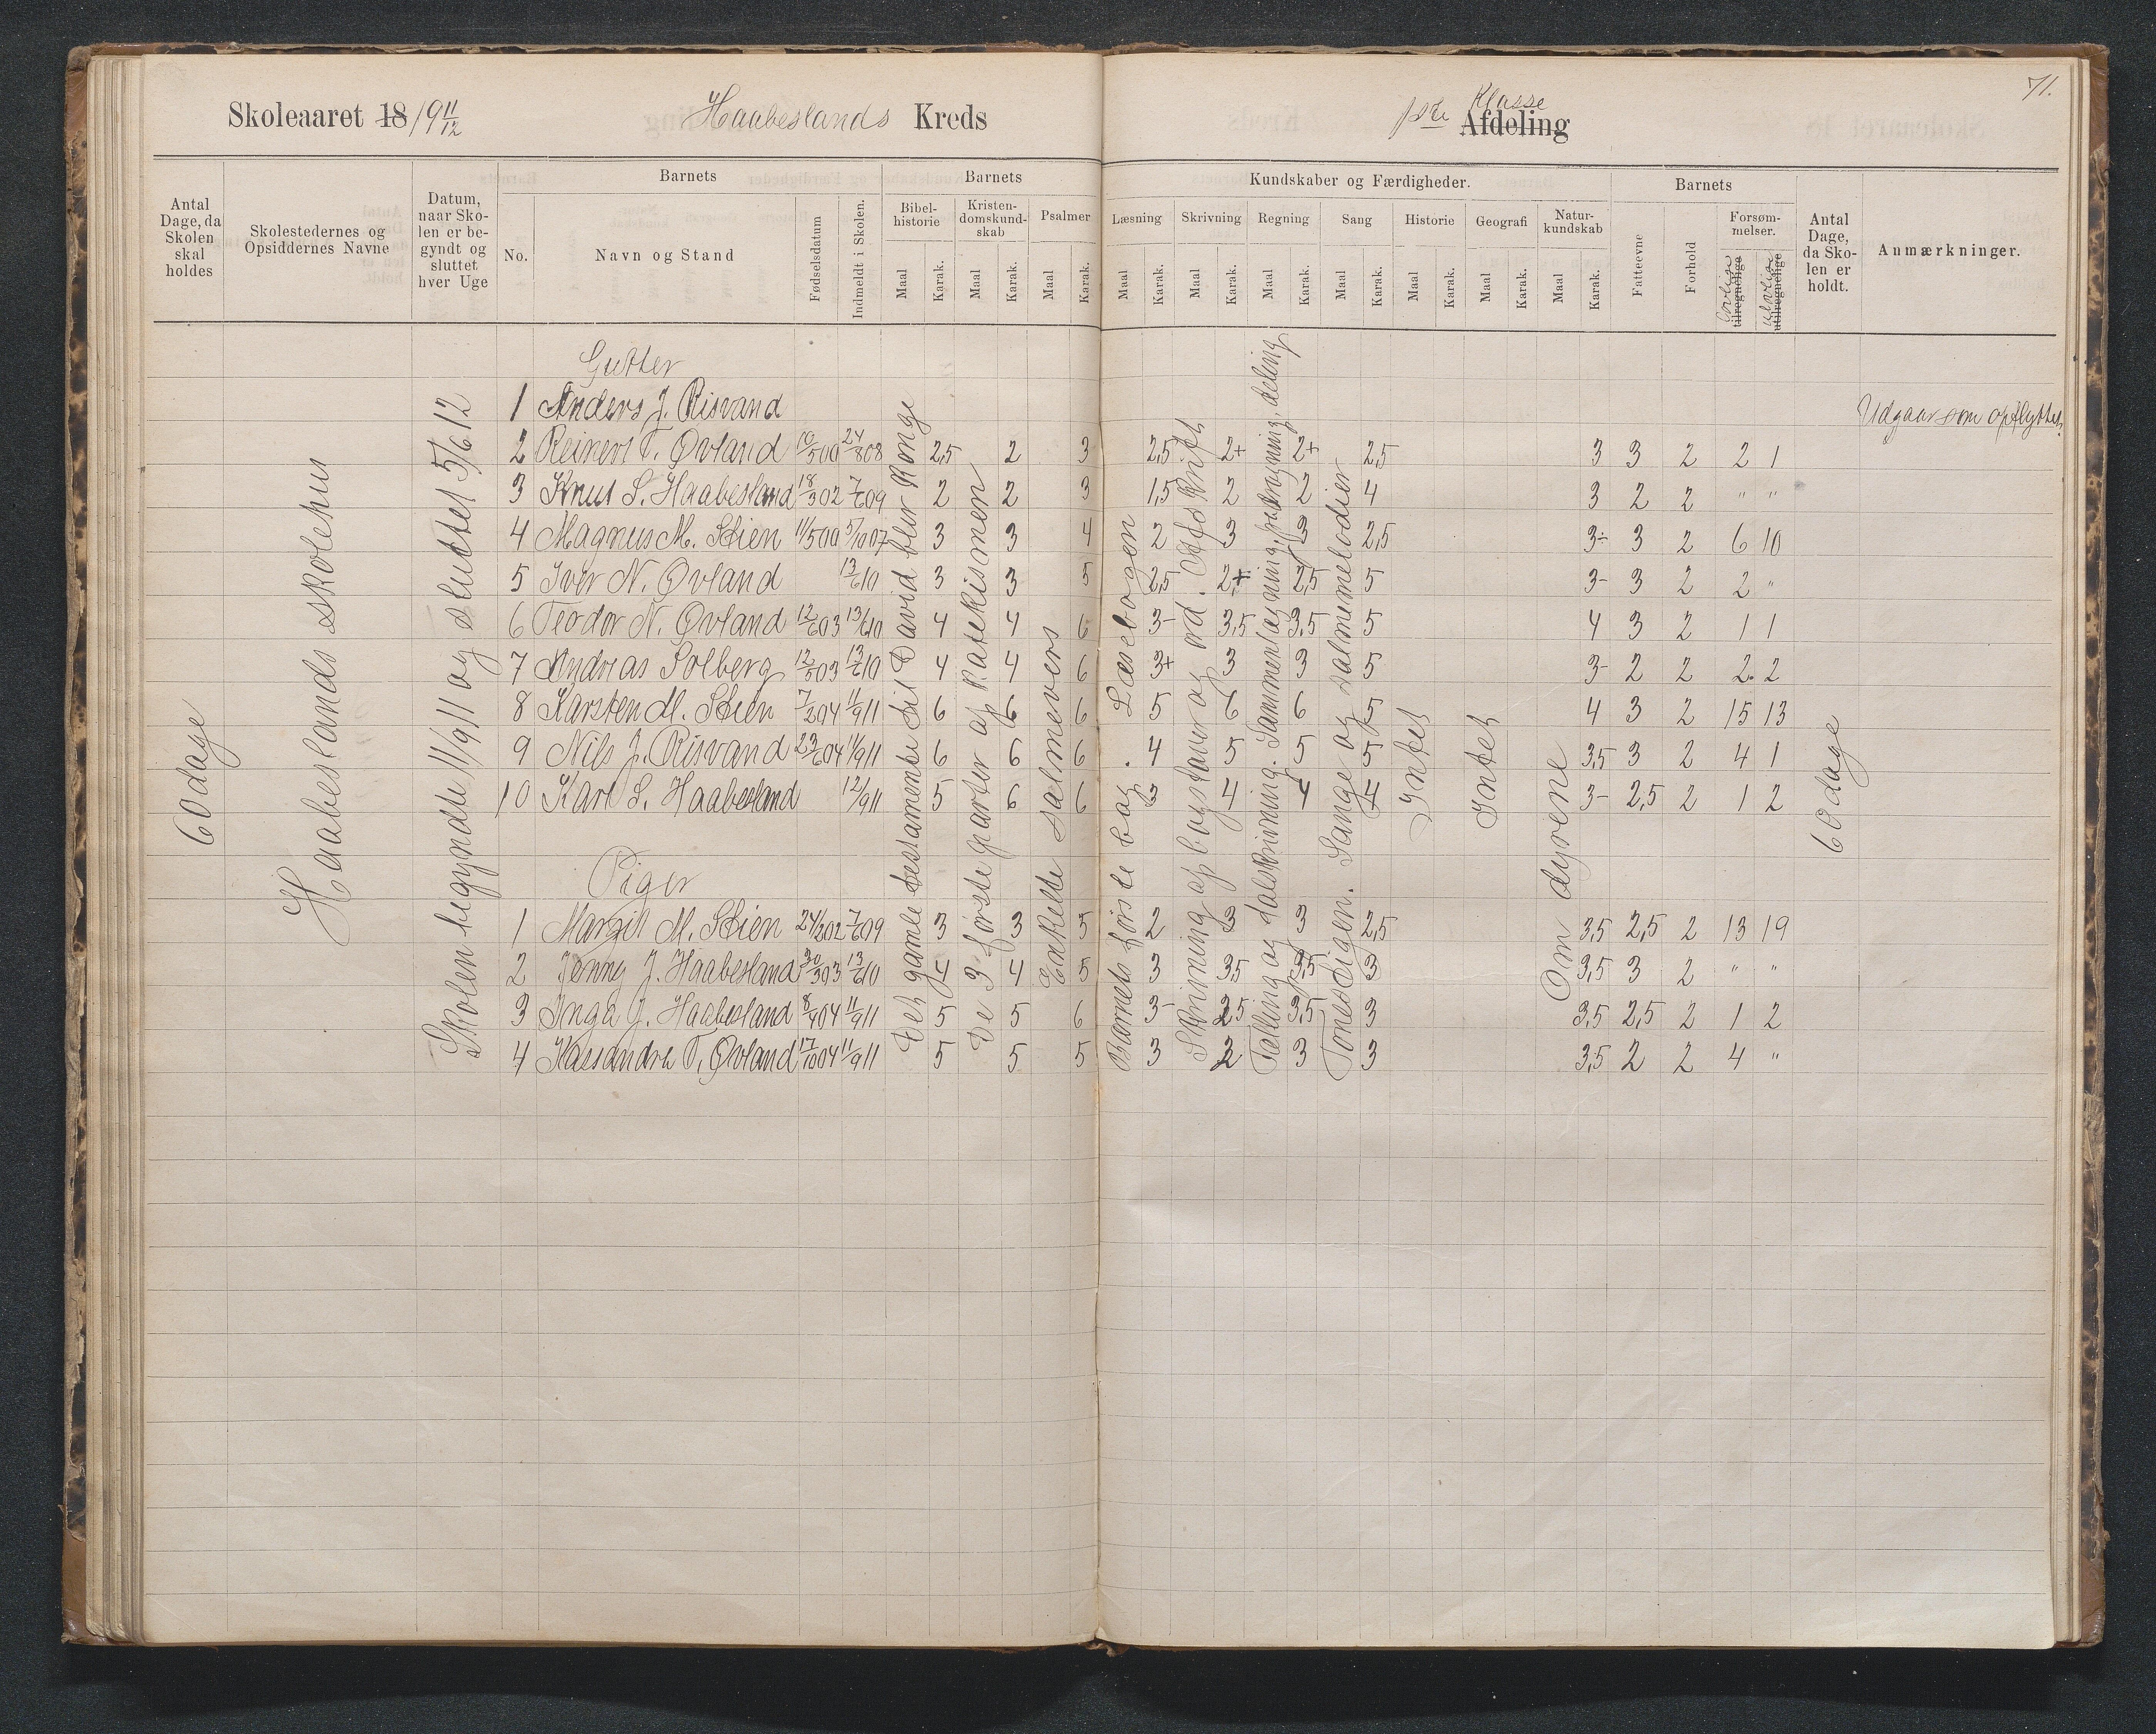 71.
Skoleaaret 18/9 11/12 Haabeslands Kreds 1ste Klasse Afdeling
Antal Dage, da Skolen skal holdes
Skolestedernes og Opsiddernes Navne
Datum, naar Skolen er begyndt og sluttet hver Uge
Barnets
No.
Navn og Stand
Fødselsdatum
Indmeldt i Skolen.
Barnets Kundskaber og Færdigheder.
Bibelhistorie Maal Karak.
Kristendomskundskab Maal Karak.
Psalmer Maal Karak.
Læsning Maal Karak.
Skrivning Maal Karak.
Regning Maal Karak.
Sang Maal Karak.
Historie Maal Karak.
Geografi Maal Karak.
Naturkundskab Maal Karak.
Barnets
Fatteevne
Forhold
Forsømmelser.
Lovlige tilregnelige
Ulovlige utilregnelige
Antal Dage, da Skolen er holdt.
Anmærkninger.
60 dage
Haabeslands skolehus
Skolen begyndte 11/9 11 og sluttet 5/6 12
Det gamle testamente til David blir Konge
De 3 første parter af Katekismen
Enkelte salmevers
Barnets første bog. Læsebogen
Skrivning af bogstaver og ord. Afskrift
Tælling og talskrivning. Sammenlægning, fradragning, deling
Tonestigen. Sange og salmemelodier
Intet
Intet
Om dyrene
60 dage
Gutter
1 Anders J. Risvand Udgaar som opflyttet.
2 Reinert T. Øvland 10/5 00 24/8 08 2,5 2 3 2,5 2+ 2+ 2,5 3 3 2 2 1
3 Knut S. Haabesland 18/3 02 7/6 09 2 2 3 1,5 2 2 4 3 2 2 " "
4 Magnus M. Stien 11/5 00 5/10 07 3 3 4 2 3 3 2,5 3- 3 2 6 10
5 Iver N. Øvland 13/6 10 3 3 5 2,5 2+ 2,5 5 3- 3 2 2 "
6 Teodor N. Øvland 12/6 03 13/6 10 4 4 6 3- 3,5 3,5 5 4 3 2 1 1
7 Andreas Solberg 12/8 03 13/6 10 4 4 6 3+ 3 3 5 3- 2 2 2 2
8 Karsten M. Stien 7/2 04 11/9 11 6 6 6 5 6 6 5 4 3 2 15 13
9 Nils J. Risvand 23/6 04 11/9 11 6 6 6 4 5 5 5 3,5 3 2 4 1
10 Karl S. Haabesland 12/9 11 5 6 6 3 4 4 4 3- 2,5 2 1 2
Piger
1 Margit M. Stien 24/2 02 7/6 09 3 3 5 2 3 3 2,5 3,5 2,5 2 13 19
2 Jenny J. Haabesland 30/3 03 13/6 10 4 4 5 3 3,5 3,5 3 3,5 3 2 " "
3 Inga J. Haabesland 8/4 04 11/9 11 5 5 6 3- 2,5 3,5 3 3,5 2,5 2 1 2
4 Kassandra T. Øvland 17/10 04 11/9 11 5 5 5 3 2 3 3 3,5 2 2 4 "